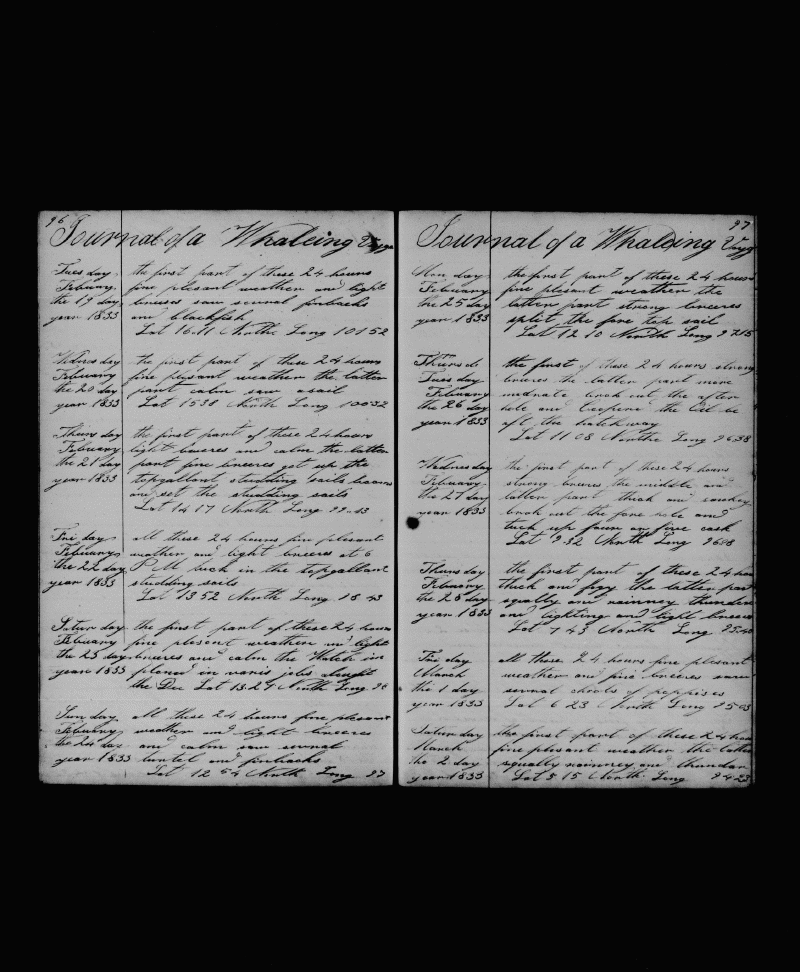 96
Journal of a Whaleing Voyge
Tues day the first part of these 24 hours
Febuary fine plesant weather and light
the 19 day breuses saw severral finbacks
year 1833 and blackfish
Lat 16.11 North Long 101 52
Wednes day the first part of these 24 hours
Febuary fine plesant weather the latter
the 20 day part calm saw a sail
year 1833 Lat 15 38 North Long 100 32
Thurs day the first part of these 24 hours
Febuary light breeres and calm the latter
the 21 day part fine breeres got up the
year 1833 topgallant studding sails booms
and set the studding sails
Lat 14 17 North Long 99.43
Fri day all these 24 hours fine plesant
Febuary weather and light breeres at 6
the 22 day P M took in the topgallant
year 1833 studding sails
Lat 13 52 North Long 98 43
Satur day the first part of these 24 hours
Febuary fine plesent weather and light
the 23 day breeres and calm the Watch im
year 1833 ployed in varis jobs about
the Dec Lat 13.24 North Long 98
Sun day all these 24 hours fine plesant
Febuary weather and light breeres
the 24 day and calm saw severral
year 1833 turtel and finbacks
Lat 12 54 North Long 97
97
Journal of a Whaleing Voyge
Mon day the first part of these 24 hours
Febuary fine plesent weather the
the 25 day latter part strong breeres
year 1833 split the fore top sail
Lat 12 10 North Long 97 15
Thursd the first of these 24 hours strong
Tues day breeres the latter part more
Febuary modrate brok out the after
the 26 day hole and Coopered the Oil be
year 1833 aft the hatch way
Lat 11 08 Northe Long 96.38
Wednesday the first part of these 24 hours
Febuary strong breeres the middle and
the 27 day latter part thick and smokey
year 1833 brok out the fore hole and
tuck up four or five cask
Lat 9.32 North Long 96.08
Thurs day the first part of these 24 hours
Febuary thick and fogy the latter part
the 28 day squally and rainney thunder
year 1833 and lighting and light breeres
Lat 7 43 North Long 95.40
Fri day all these 24 hours fine plesant
March weather and fine breeres saw
the 1 day severral shools of poppises
year 1833 Lat 6 23 North Long 95 03
Satur day the first part of these 24 hours
March fine plesant weather the latter
the 2 day squally rainney and thundar
year 1833 Lat 5 15 North Long 94 23